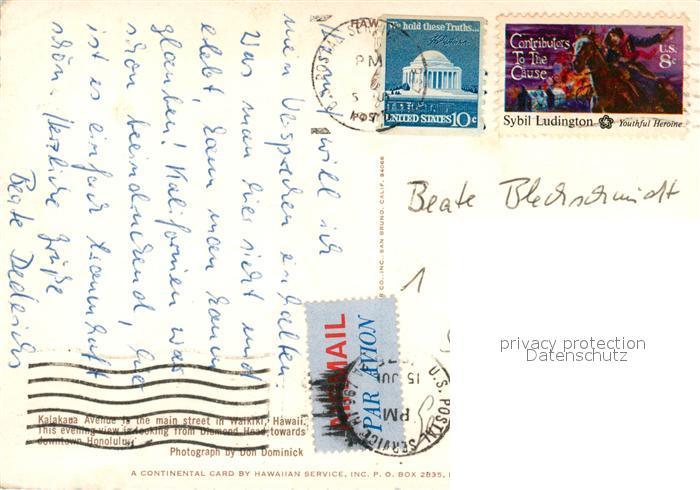 Hiermit will ich
mein Versprechen enhalten.
Was man hier sieht und
erlebt, kann man kaum
glauben! Kalifornien war
schon beeindruckend, hier
ist es einfach traumhaft
schön. Herzliche Grüße
Beate Dederichs
HAWAII
PM
We hold these Truths...
UNITED STATES 10c
Contributors
To The
Cause...
U.S.
8c
Sybil Ludington Youthful Heroine
Beate Blechschmidt
privacy protection
Datenschutz
AIR MAIL
PAR AVION
U.S. POSTAL SERVICE HI 967
PM
15 JUL
Kalakaua Avenue is the main street in Waikiki, Hawaii.
This evening view is looking from Diamond Head towards
downtown Honolulu.
Photograph by Don Dominick
A CONTINENTAL CARD BY HAWAIIAN SERVICE, INC. P. O. BOX 2835,
CO., INC., SAN BRUNO, CALIF. 94066